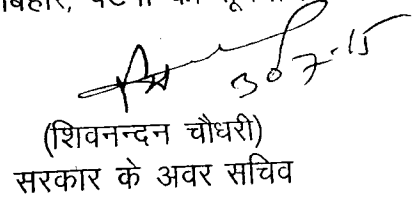 बिहार, पटना
30-7-15
(शिवनन्दन चौधरी)
सरकार के अवर सचिव